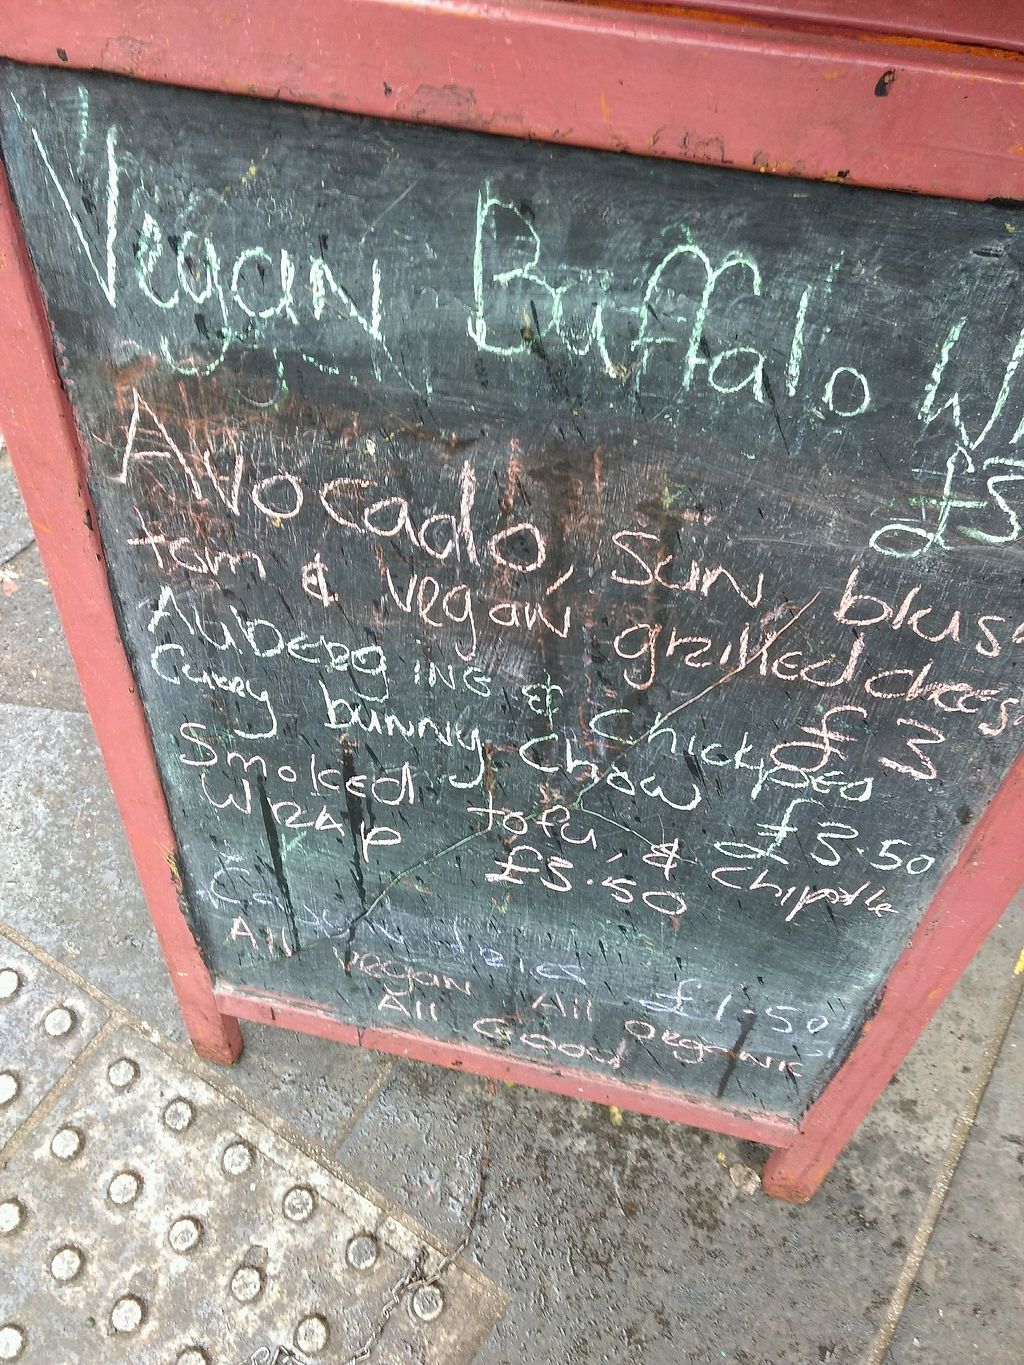 Vegan Buffalo Wi
£5
Avocado, sun blus
tom & vegan grilled chees
£3
Aubergine & Chickpea
Curry bunny Chow £3.50
Smoked tofu, & Chipotle
Wrap £3.50
Cajun £1.50
All vegan All organic
All Good